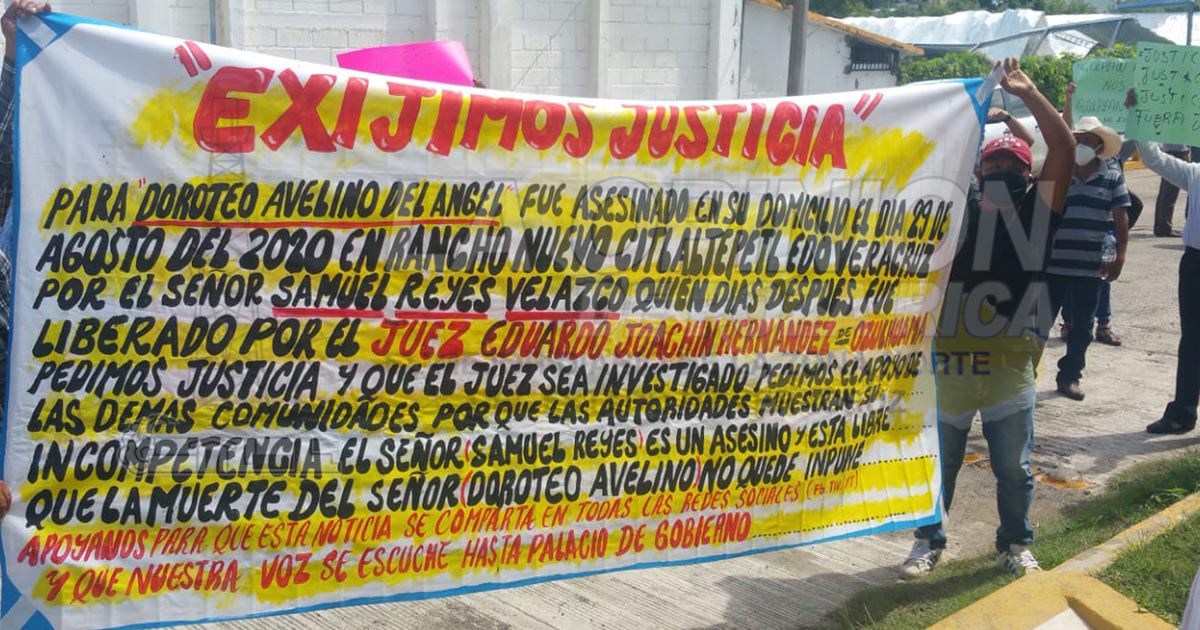 "EXIJIMOS JUSTICIA"
PARA "DOROTEO AVELINO DEL ANGEL" FUE ASESINADO EN SU DOMICILIO EL DIA 29 DE
AGOSTO DEL 2020 EN RANCHO NUEVO CITLALTEPETL EDO VERACRUZ
POR EL SEÑOR SAMUEL REYES VELAZCO QUIEN DIAS DESPUES FUE
LIBERADO POR EL JUEZ EDUARDO JOACHIN HERNANDEZ DE OZULHUAMA
PEDIMOS JUSTICIA Y QUE EL JUEZ SEA INVESTIGADO PEDIMOS EL APOYO DE
LAS DEMAS COMUNIDADES POR QUE LAS AUTORIDADES MUESTRAN SU
INCOMPETENCIA EL SEÑOR (SAMUEL REYES) ES UN ASESINO Y ESTA LIBRE
QUE LA MUERTE DEL SEÑOR (DOROTEO AVELINO) NO QUEDE INPUNE
APOYANOS PARA QUE ESTA NOTICIA SE COMPARTA EN TODAS LAS REDES SOCIALES (FB. TW. YT)
Y QUE NUESTRA VOZ SE ESCUCHE HASTA PALACIO DE GOBIERNO
NOS
JUSTIC
JUST
JUSTIC
FUERA
OPINION